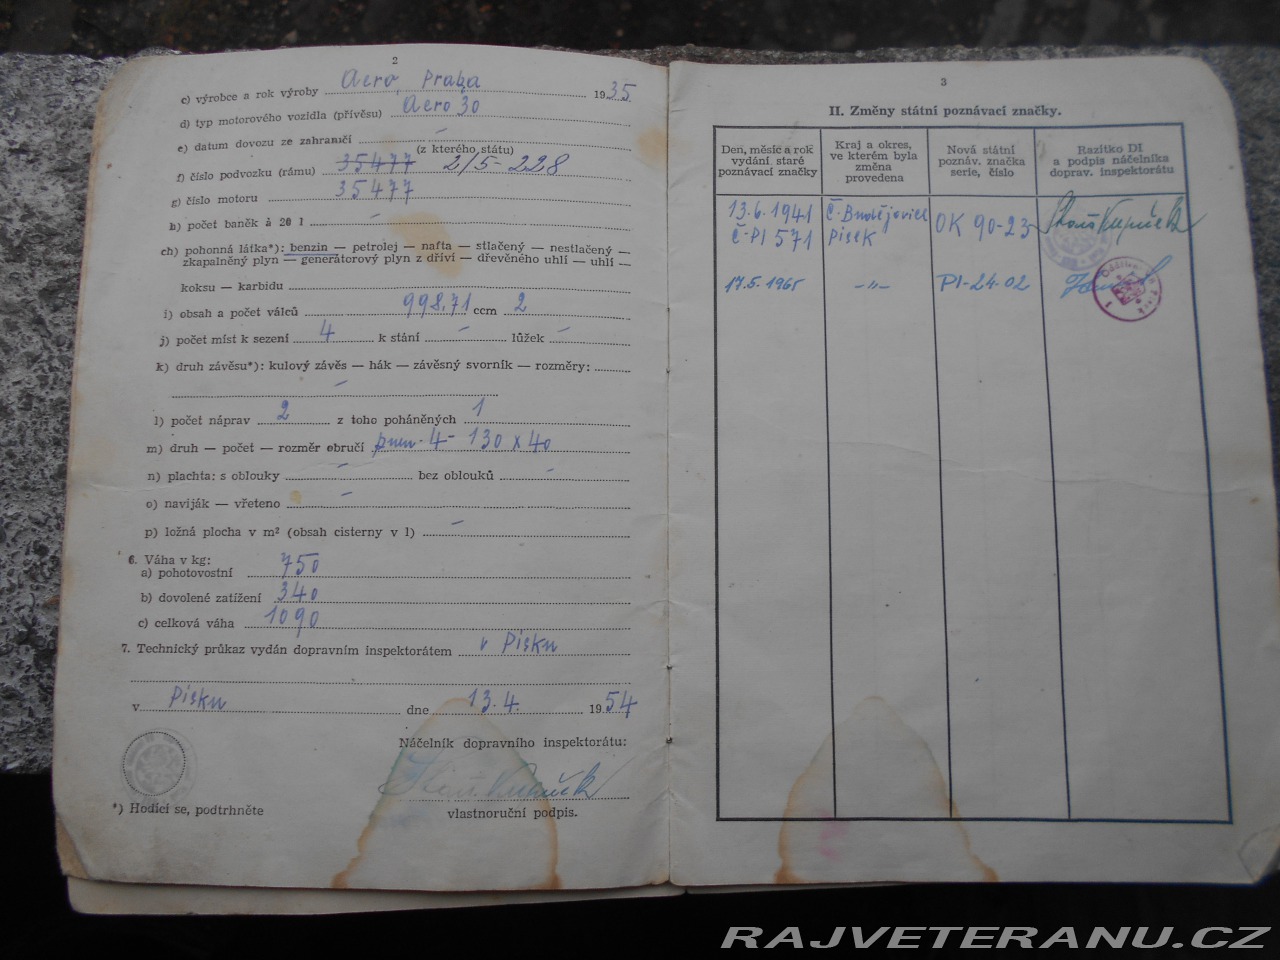 2
c) výrobce a rok výroby Aero, Praha 1935
d) typ motorového vozidla (přívěsu) Aero 30
e) datum dovozu ze zahraničí –
(z kterého státu)
f) číslo podvozku (rámu) 35477 2/5-228
g) číslo motoru 35477
h) počet baněk à 20 l –
ch) pohonná látka*): benzin — petrolej — nafta — stlačený — nestlačený —
zkapalněný plyn — generátorový plyn z dříví — dřevěného uhlí — uhlí —
koksu — karbidu
i) obsah a počet válců 998,71 ccm 2
j) počet míst k sezení 4 k stání – lůžek –
k) druh závěsu*): kulový závěs — hák — závěsný svorník — rozměry:
–
l) počet náprav 2 z toho poháněných 1
m) druh — počet — rozměr obručí pneu-4- 130 x 40
n) plachta: s oblouky – bez oblouků –
o) naviják — vřeteno –
p) ložná plocha v m² (obsah cisterny v l) –
6. Váha v kg:
a) pohotovostní 750
b) dovolené zatížení 340
c) celková váha 1090
7. Technický průkaz vydán dopravním inspektorátem v Písku
v Písku dne 13.4. 1954
Náčelník dopravního inspektorátu:
*) Hodící se, podtrhněte
vlastnoruční podpis.
3
II. Změny státní poznávací značky.
Den, měsíc a rok vydání staré poznávací značky
Kraj a okres, ve kterém byla změna provedena
Nová státní poznáv. značka serie, číslo
Razítko DI a podpis náčelníka doprav. inspektorátu
13.6.1941 Č.Budějovice OK 90-23
Č-PI 571 Písek
17.5.1965 –"– PI-24-02
RAJVETERANU.CZ